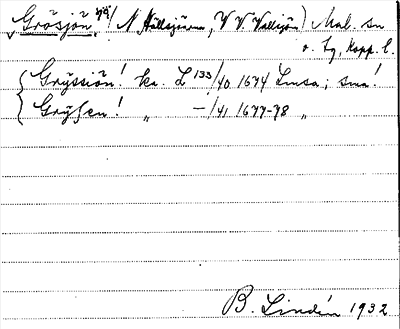 Grösjön, N Hällsjöarne, V V. Vallsjön) Mal. sn
o. tg, Kopp. l.
Gryssiön! kr. L 133/40 1674 Limsa; sma!
Gryssen! „ —/41 1677-78 „
B. Lindén 1932